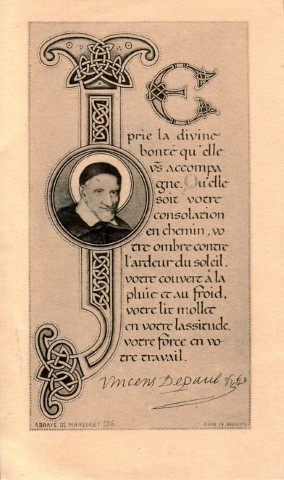 JE
prie la divine
bonté qu'elle
vs accompa
gne. Qu'elle
soit votre
consolation
en chemin, vo
tre ombre contre
l'ardeur du soleil,
votre couvert à la
pluie et au froid,
votre lit mollet
en votre lassitude,
votre force en vo
tre travail.
Vincens Depaul
ABBAYE DE MAREDRET 236
MADE IN BELGIUM